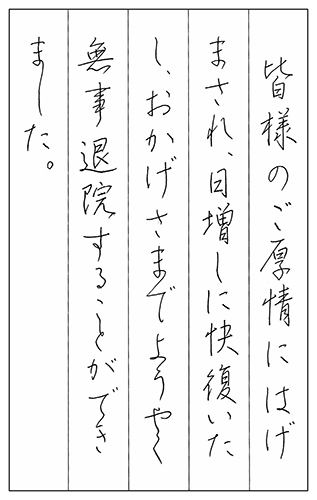 皆様のご厚情にはげ
まされ、日増しに快復いた
し、おかげさまでようやく
無事退院することができ
ました。